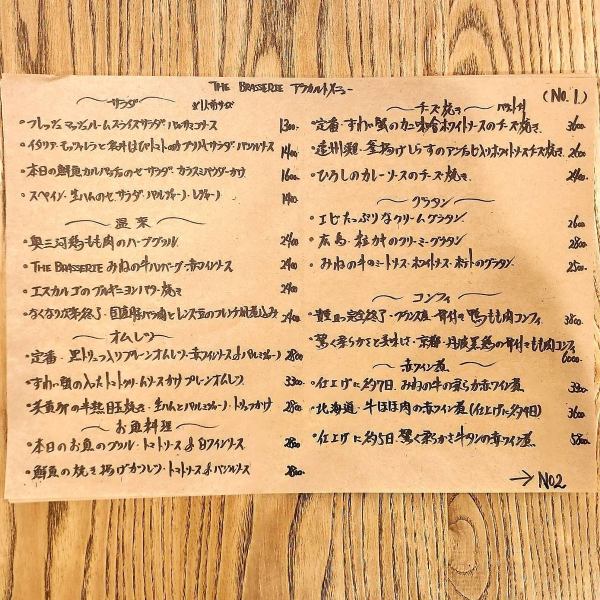 THE BRASSERIE アラカルトメニュー
(No.1)
サラダ
フレッシュマッシュルームスライスサラダ・バルサミコソース 1300-
イタリア・モッツァレラと糸井はひトマトのカプリサラダ・バジルソース 1400-
本日の鮮魚カルパッチョのせサラダ・カラスミパウダーかけ 1600-
スペイン・生ハムのせサラダ・パルミジャーノ・レジャーノ 1400-
温菜
奥三河鶏もも肉のハーブグリル 2400
THE BRASSERIE みねの牛ハンバーグ・赤ワインソース 2400
エスカルゴのブルギニヨンバター焼き 2400
なくなり次第終了・国産豚バラ肉とレンズ豆のフレンチ風煮込み 2400
オムレツ
定番・黒トリュフ入りプレーンオムレツ・赤ワインソース&パルミジャーノ 2800
ずわい蟹の入ったトマトクリームソースかけプレーンオムレツ 3300
の半熟目玉焼き・生ハムとパルミジャーノ・トリュフかけ 2800
お魚料理
本日のお魚のグリル・トマトソース&白ワインソース 2800
鮮魚の焼き揚げカツレツ・トマトソース&バジルソース 2800
チーズ焼き
定番・ずわい蟹のカニ味噌ホワイトソースのチーズ焼き 3600
遠州灘・釜揚げしらすのアンチョビ入りホワイトソースチーズ焼き 2600
ひろしのカレーソースのチーズ焼き 2400
グラタン
エビたっぷりなクリームグラタン 2600
広島・粒カキのクリーミーグラタン 2800
みねの牛のミートソース・ホワイトソース・ポテトのグラタン 2500
コンフィ
完全終了・フランス産・骨付き鴨もも肉コンフィ 3800
驚く柔らかさと美味しさ・京都・丹波黒鶏の骨付きもも肉コンフィ 6000
赤ワイン煮
仕上げに約7日・みねの牛の柔らか赤ワイン煮 3300
北海道・牛ほほ肉の赤ワイン煮(仕上げに約4日) 3600
仕上げに約5日・驚く柔らかさ牛タンの赤ワイン煮 5800
→ No.2